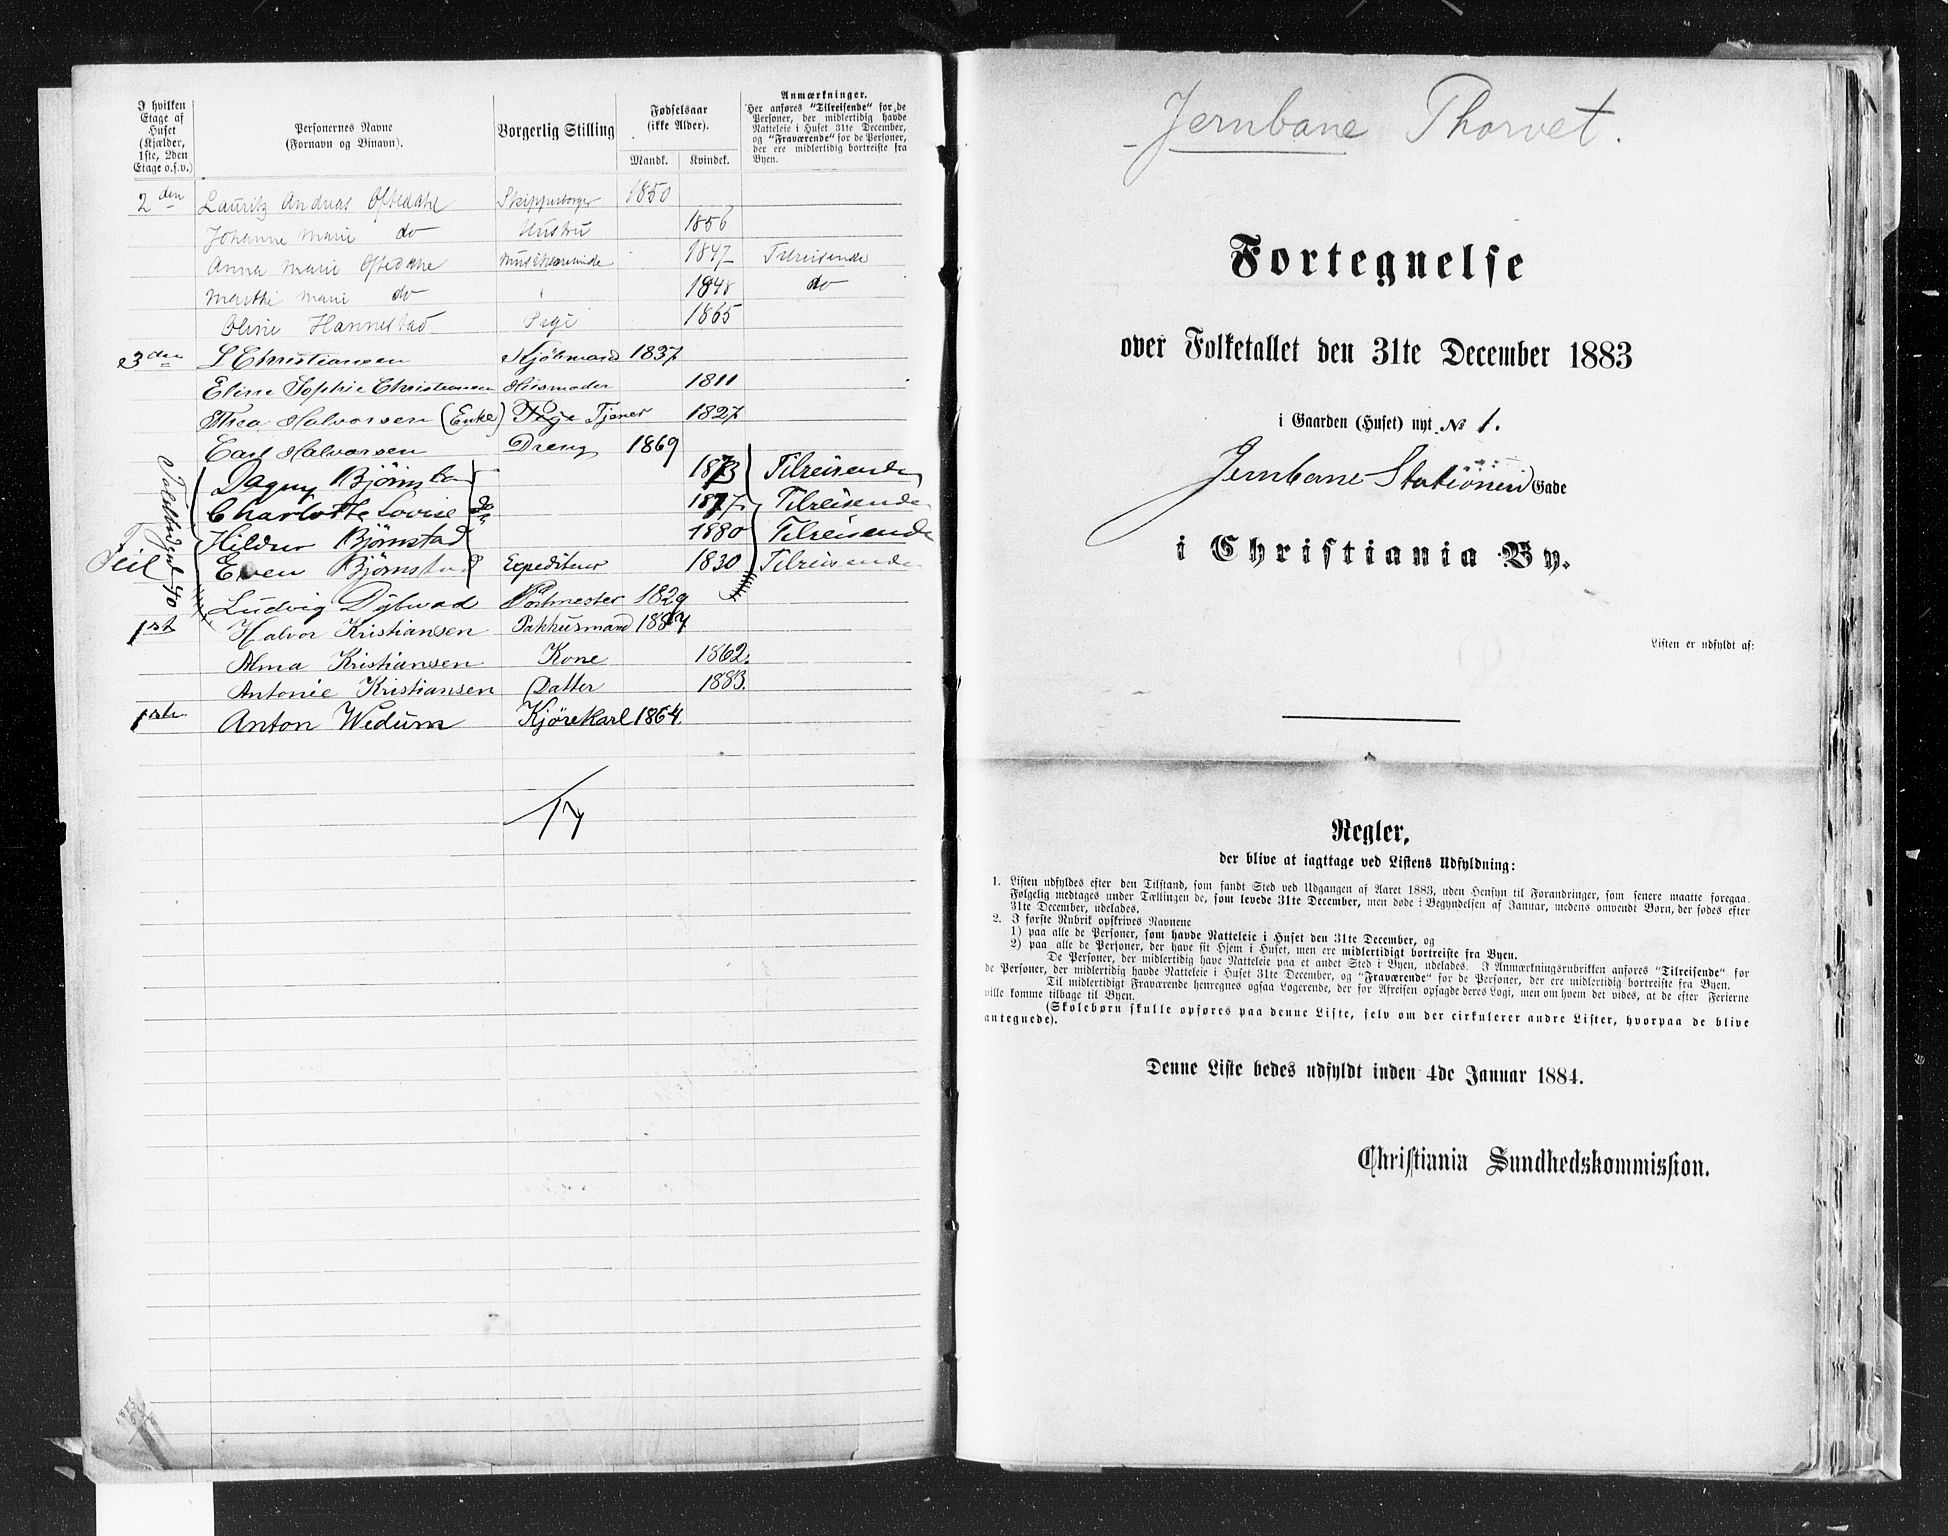 I hvilken
Etage af
Huset
(Kjælder,
1ste, 2den
Etage o.s.v.)
Personernes Navne
(Fornavn og Binavn).
Borgerlig Stilling
Fødselsaar
(ikke Alder).
Mandk. Kvindek.
Anmærkninger.
Her anføres "Tilreisende" for de
Personer, der midlertidig havde
Natteleie i Huset 31te December,
og "Fraværende" for de Personer,
der ere midlertidig bortreiste fra
Byen.
2den Lauritz Andreas Oftedahl Skipperborger 1850
Johanne Marie do Hustru 1856
Anna Marie Oftedahl 1847 Tilreisende
Marthe Marie do " 1848 do
Oline Hannestad Pige 1865
3den L Christiansen Kjøbmand 1837
Eline Sophie Christiansen Husmoder 1811
Thea Halvorsen (Enke) Pige Tjener 1827
Carl Halvorsen Dreng 1869
Dagny Bjørnstad 1873 Tilreisende
Charlotte Lovise do 1877 Tilreisende
Hildur Bjørnstad 1880 Tilreisende
Feil Even Bjørnstad Expediteur 1830 Tilreisende
Toldbodgd 40
Ludvig Dybwad Postmester 1829
1ste Halvor Kristiansen Pakhusmand 1857
Alma Kristiansen Kone 1862.
Antonie Kristiansen Datter 1883.
1ste Anton Wedum Kjørekarl 1864
17
Jernbane Thorvet.
Fortegnelse
over Folketallet den 31te December 1883
i Gaarden (Huset) nyt No 1.
Jernbane Stationen Gade
i Christiania By.
Listen er udfyldt af:
Regler,
der blive at iagttage ved Listens Udfyldning:
1. Listen udfyldes efter den Tilstand, som fandt Sted ved Udgangen af Aaret 1883, uden Hensyn til Forandringer, som senere maatte foregaa.
Følgelig medtages under Tællingen de, som levede 31te December, men døde i Begyndelsen af Januar, medens omvendt Børn, der fødes efter
31te December, udelades.
2. I første Rubrik opskrives Navnene
1) paa alle de Personer, som havde Natteleie i Huset den 31te December, og
2) paa alle de Personer, der have sit Hjem i Huset, men ere midlertidigt bortreiste fra Byen.
De Personer, der midlertidig have Natteleie paa et andet Sted i Byen, udelades. I Anmærkningsrubrikken anføres "Tilreisende" for
de Personer, der midlertidig havde Natteleie i Huset 31te December, og "Fraværende" for de Personer, der ere midlertidig bortreiste fra Byen.
Til midlertidigt Fraværende henregnes ogsaa Logerende, der før Afreisen opsagde deres Logi, men om hvem det vides, at de efter Ferierne
ville komme tilbage til Byen.
(Skolebørn skulle opføres paa denne Liste, selv om der cirkulerer andre Lister, hvorpaa de blive
antegnede).
Denne Liste bedes udfyldt inden 4de Januar 1884.
Christiania Sundhedskommission.